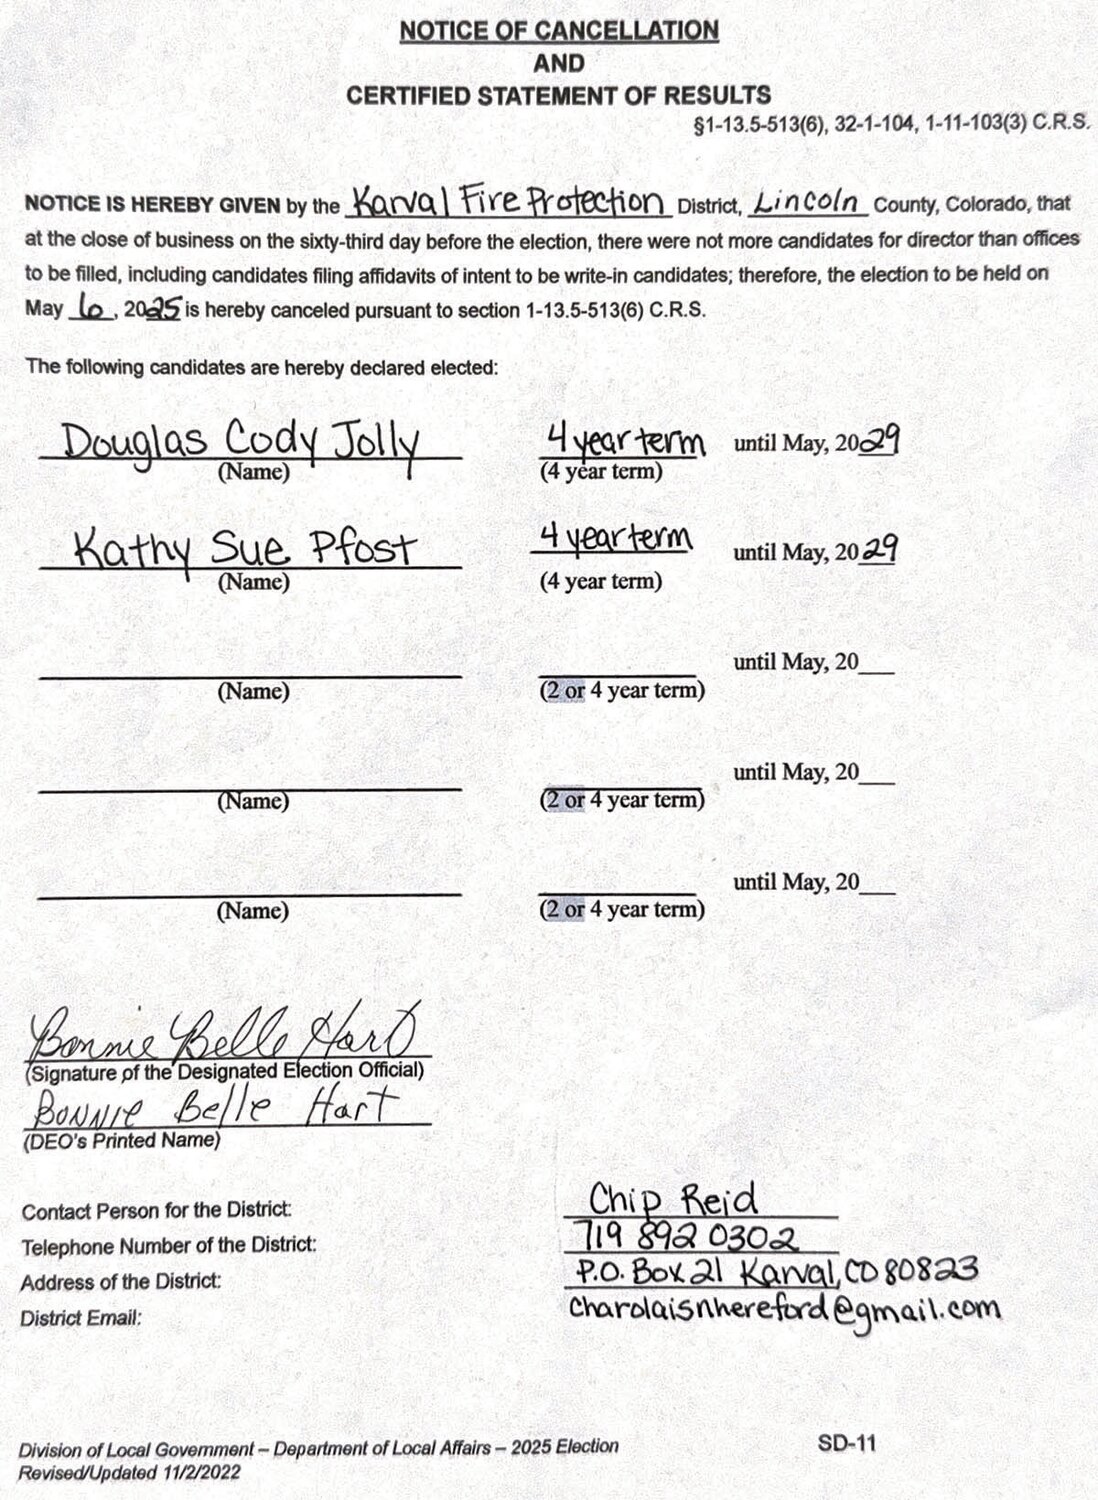 NOTICE OF CANCELLATION
AND
CERTIFIED STATEMENT OF RESULTS
§1-13.5-513(6), 32-1-104, 1-11-103(3) C.R.S.
NOTICE IS HEREBY GIVEN by the Karval Fire Protection District, Lincoln County, Colorado, that
at the close of business on the sixty-third day before the election, there were not more candidates for director than offices
to be filled, including candidates filing affidavits of intent to be write-in candidates; therefore, the election to be held on
May 6, 2025 is hereby canceled pursuant to section 1-13.5-513(6) C.R.S.
The following candidates are hereby declared elected:
Douglas Cody Jolly 4 year term until May, 2029
(Name) (4 year term)
Kathy Sue Pfost 4 year term until May, 2029
(Name) (4 year term)
until May, 20___
(Name) (2 or 4 year term)
until May, 20___
(Name) (2 or 4 year term)
until May, 20___
(Name) (2 or 4 year term)
Bonnie Belle Hart
(Signature of the Designated Election Official)
Bonnie Belle Hart
(DEO's Printed Name)
Contact Person for the District: Chip Reid
Telephone Number of the District: 719 892 0302
Address of the District: P.O. Box 21 Karval, CO 80823
District Email: charolaisnhereford@gmail.com
Division of Local Government – Department of Local Affairs – 2025 Election SD-11
Revised/Updated 11/2/2022